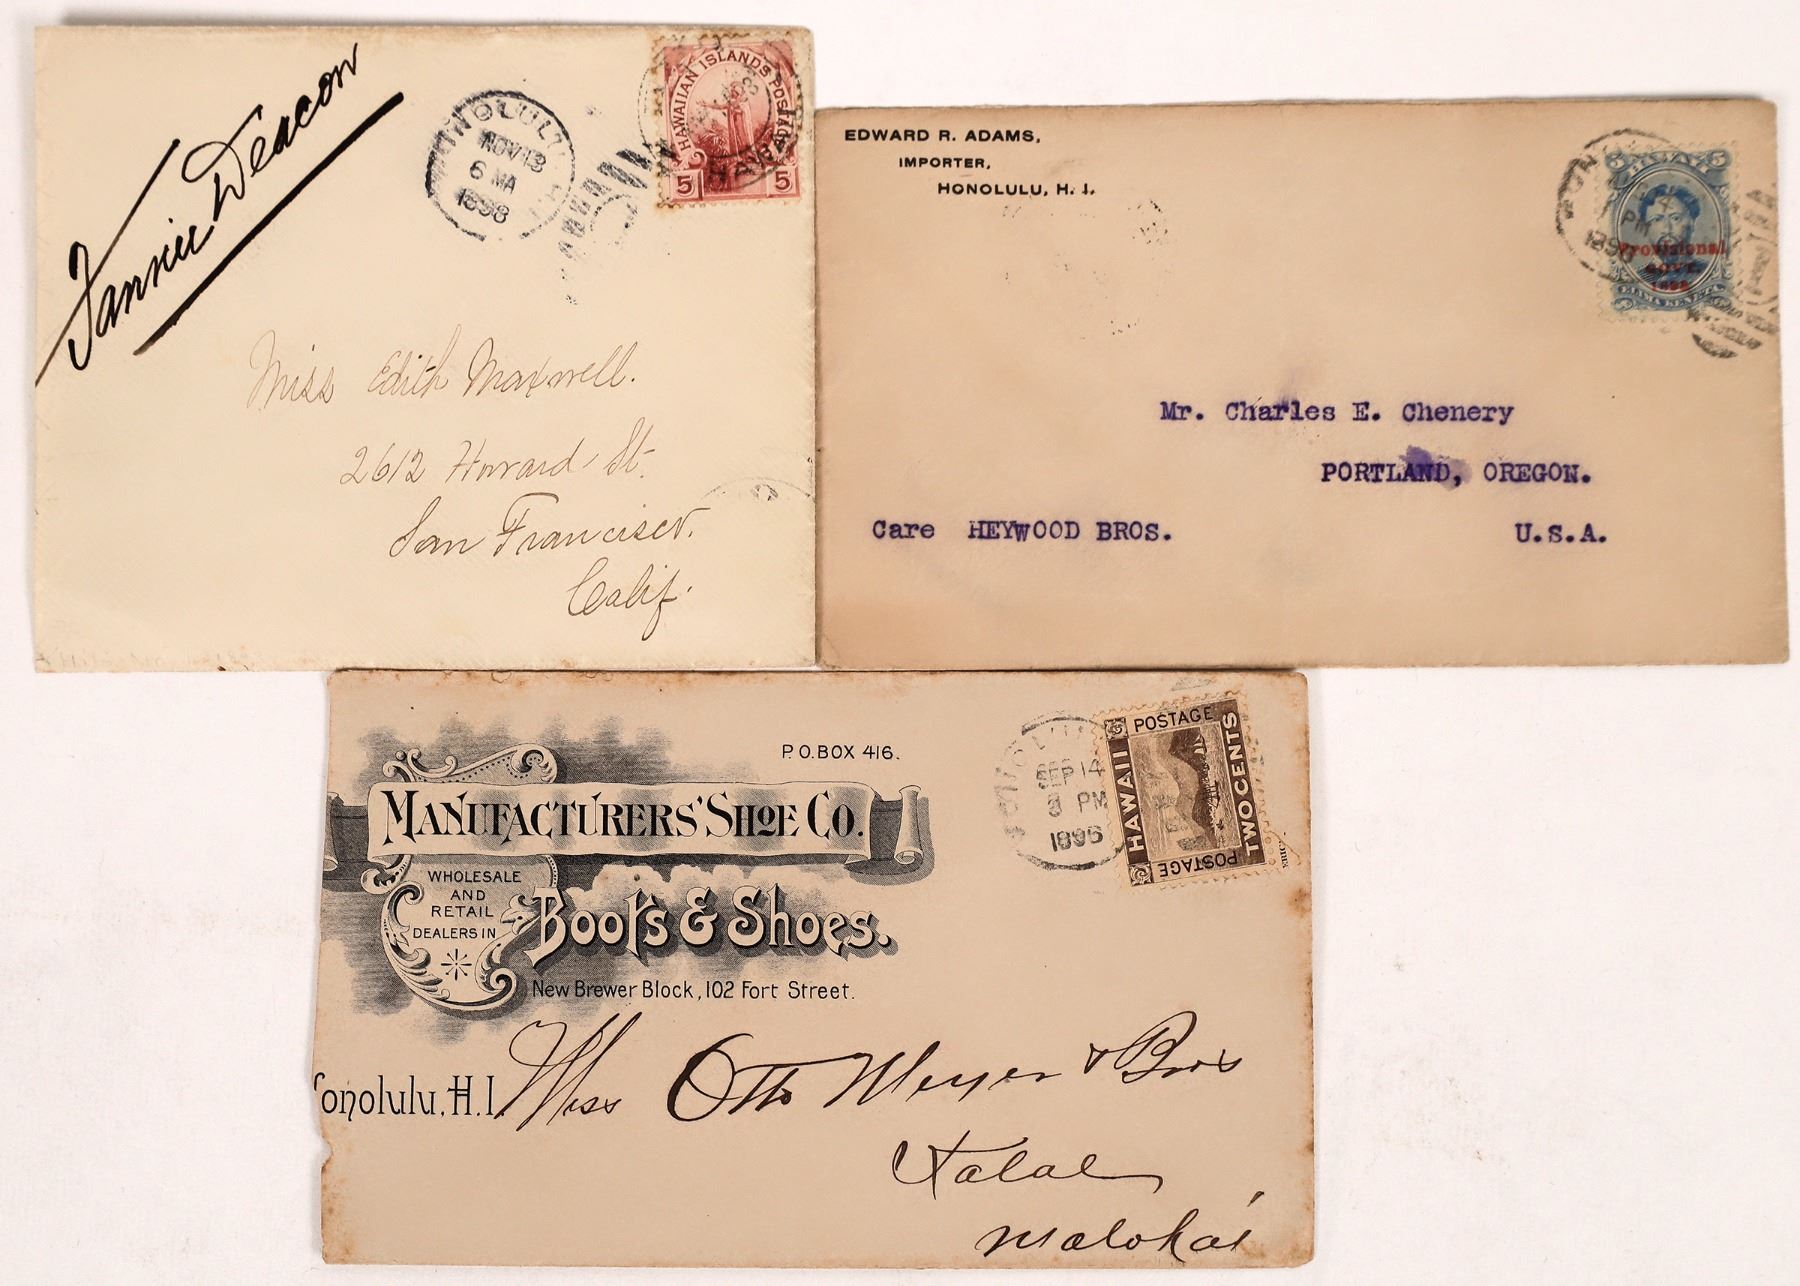 Fannie Deacon
HONOLULU
NOV 13
6 MA
1898
HAWAIIAN ISLANDS POSTAGE
5 5
Miss Edith Maxwell.
2612 Howard St.
San Francisco.
Calif.
EDWARD R. ADAMS,
IMPORTER,
HONOLULU, H. I.
PM
5 HAWAII 5
Provisional
GOVT.
1893
ELIMA KENETA
Mr. Charles E. Chenery
PORTLAND, OREGON.
Care HEYWOOD BROS.
U.S.A.
P.O.BOX 416.
MANUFACTURERS' SHOE CO.
WHOLESALE
AND
RETAIL
DEALERS IN
Boots & Shoes.
New Brewer Block, 102 Fort Street.
onolulu, H.I.
SEP 14
PM
1896
POSTAGE
HAWAII
TWO CENTS
POSTAGE
Miss Otto Meyer & Bros
Kalae
Molokai